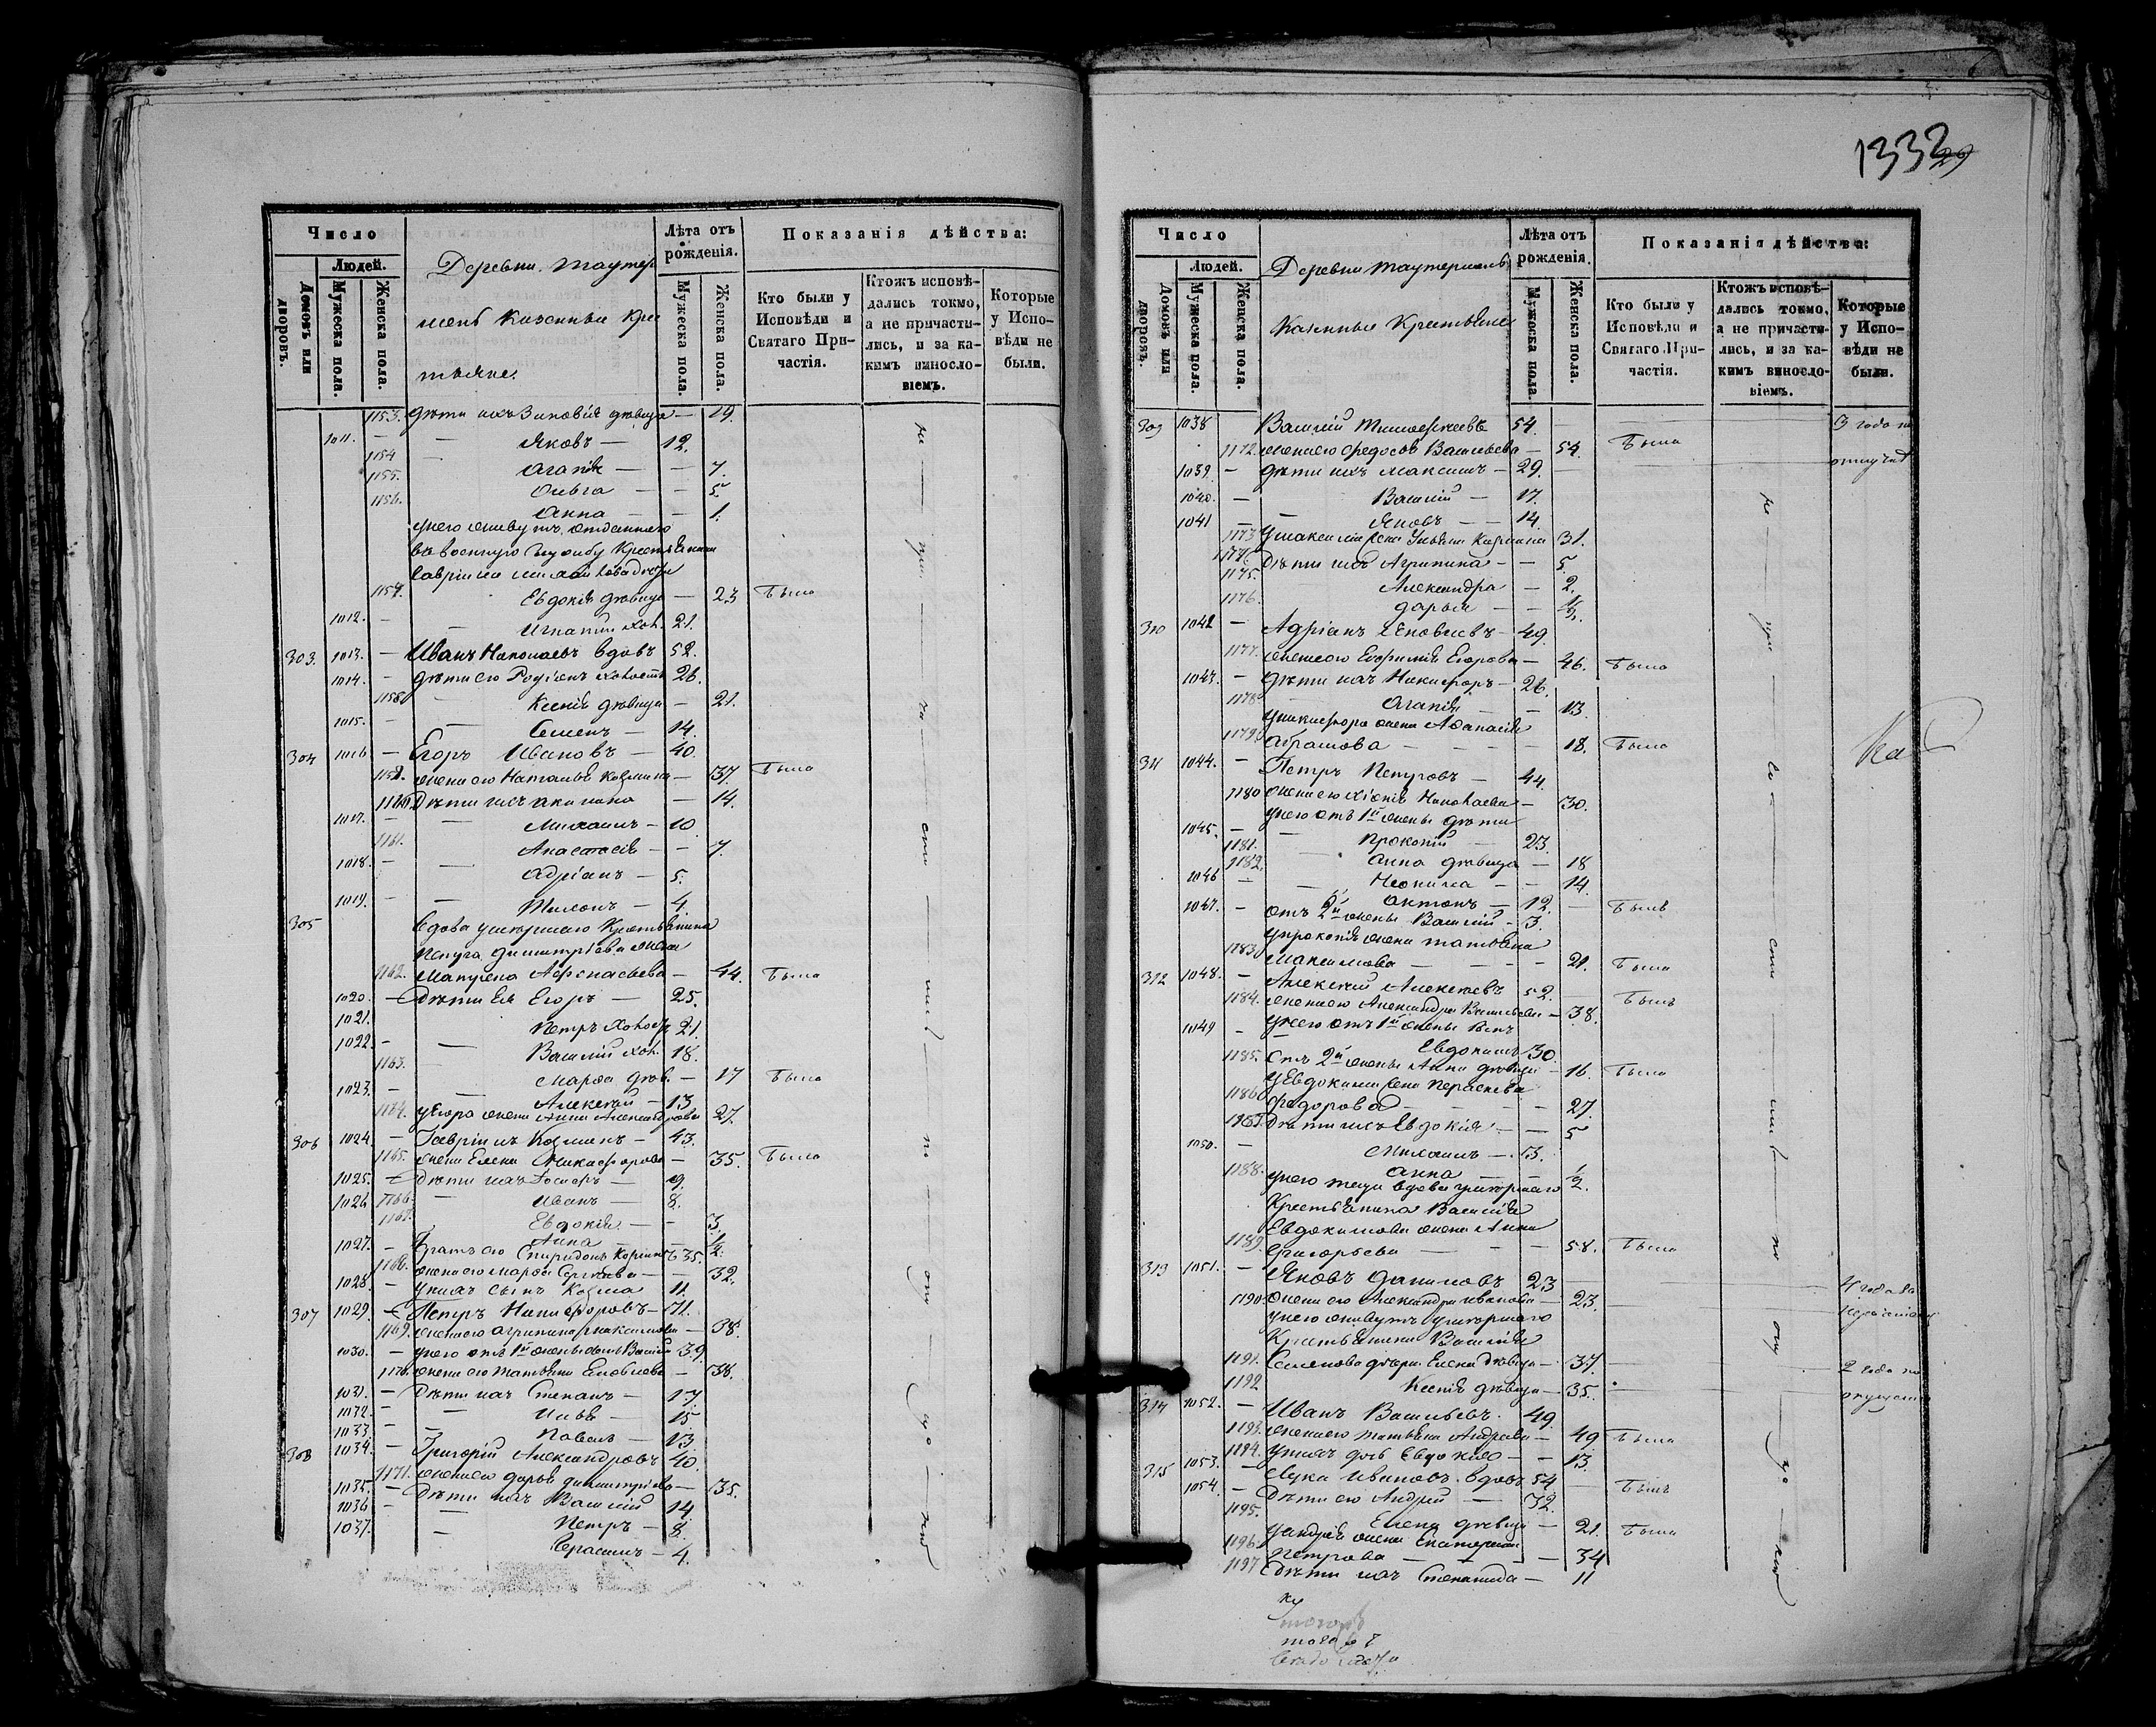 Число
Людей.
Домовъ или дворовъ.
Мужеска пола.
Женска пола.
Деревни Таутер
менъ Казенныи Крес
тьяне.
Лѣта отъ рожденія.
Мужеска пола.
Женска пола.
Показанія дѣйства:
Кто были у Исповѣди и Святаго Причастія.
Ктожъ исповѣдались токмо, а не причастились, и за какимъ винословіемъ.
Которые у Исповѣди не были.
1153. дѣти ихъ Зиновія дѣвица — 19.
1011. — Яковъ — 12.
1154 Агапія — — 7.
1155. Ольга — — 5.
1156. Анна — — 1.
у него живутъ отданнаго
въ военную службу Крестьянина
1157. Евдокія дѣвица — 23 Была
1012. — Игнатій хол. 21.
303. 1013. — Иванъ Николаевъ вдовъ 52.
1014. — дѣти его Родіонъ холостъ 26.
1158 Ксенія дѣвица — 21.
1015. — Семенъ — 14.
304 1016 — Егоръ Ивановъ — 40.
1159. жена его Наталья Козмина — 37. Была
1160. Дѣти ихъ Акилина — 14.
1017. — Михаилъ — 10
1161. Анастасія — — 7.
1018. — Адріанъ — 5.
1019. — Тихонъ — 4.
305 Вдова умершаго Крестьянина
Петра Димитріева жена
1162. Матрена Афонасьева — 44. Была
1020. — Дѣти Ея Егоръ — 25.
1021. Петръ Холост 21.
1022. — Василій хол. 18.
1163. Марѳа дѣв. — 17 Была
1023. — Алексѣй — 13
1164. у Егора жена Анна Александрова 27.
306 1024. — Гавріилъ Козминъ — 43.
1165. жена Елена Никифорова — 35. Была
1025. — Дѣти ихъ — 9.
1026 1166. Иванъ — 8.
1167. Евдокія — — 3.
Анна — — ½.
1027. — братъ его Спиридонъ Козминъ 35.
1168. жена его Марѳа Сергѣева — 32.
1028 — у нихъ сынъ Козма 11.
307 1029. — Петръ Никифоровъ — 71.
1169. жена его Агрипина Максимова — 38.
1030. — у него отъ 1й жены сынъ Василій 39.
1170. жена его Татьяна Яковлева — 38.
1031. — Дѣти ихъ Степанъ — 17
1032. — Илья — 15
1033. — Павелъ — 13
308 1034. — Григорій Александровъ 40.
1171. жена его Дарья Димитріева — 35.
1035. — Дѣти ихъ Василій 14
1036 — Петръ — 8.
1037. — Герасимъ — 4.
1332
29
Число
Людей.
Домовъ или дворовъ.
Мужеска пола.
Женска пола.
Деревни Таутерменъ
Казенные Крестьяне
Лѣта отъ рожденія.
Мужеска пола.
Женска пола.
Показанія дѣйства:
Кто были у Исповѣди и Святаго Причастія.
Ктожъ исповѣдались токмо, а не причастились, и за какимъ винословіемъ.
Которые у Исповѣди не были.
309 1038 Василій Тимоѳеевъ 54. — 3 года по
1172. жена его Федосья Васильева — 54. Была
1039. — дѣти ихъ Максимъ — 29.
1040. — Василій — 17.
1041 — Яковъ — 14.
1173 у Максима жена Ульяна Карпова 31.
1174. Дѣти ихъ Агрипина — — 5.
1175. Александра — 2.
1176. Дарья — — ½.
310 1042 — Адріанъ Яковлевъ — 49.
1177. жена его Евфимія Егорова — 46. Была
1043. — дѣти ихъ Никифоръ — 26.
1178. Агапія — — 13.
у Никифора жена Аѳанасія
1179. Абрамова — — — 18. Была
311 1044. — Петръ Петровъ — 44.
1180 жена его Хіонія Николаева — 30.
у него отъ 1й жены дѣти
1045. — Прокопій — 23.
1181. Анна дѣвица — 18
1182. Неонила — — 14.
1046 — Антонъ — 12. — Былъ
1047. — отъ 2й жены Василій — 3.
у Прокопія жена Татьяна
1183. Максимова — — — 21. Была
312 1048. — Алексѣй Алексѣевъ 52. — Былъ
1184. жена его Александра Васильева — 38.
1049 — у него отъ 1й жены
Евдокимъ 30.
1185. отъ 2й жены Анна дѣвица — 16. Была
у Евдокима жена Параскева
1186 Федорова — — — 27.
1187. Дѣти ихъ Евдокія — — 5
1050. — Михаилъ — 3.
1188. Анна — — ½.
у него теща вдова умершаго
Крестьянина Василія
Евдокимова жена Анна
1189. Григорьева — — — 58. Была
313 1051. — Яковъ Даниловъ 23 — 4 года
1190. жена его Александра Иванова — 23.
у него живутъ умершаго
Крестьянина Василія
1191. Семенова дѣти Елена дѣвица — 37. — 2 года по
1192 Ксенія дѣвица — 35.
314 1052. — Иванъ Васильевъ. 49
1193. жена его Татьяна Андреева — 49. Была
1194. у нихъ дочь Евдокія — — 13.
315 1053. — Лука Ивановъ вдовъ 54 — Былъ
1054. — Дѣти его Андрей — 32.
1195. Елена дѣвица — 21. Была
1196. у Андрея жена Екатерина
Петрова — — — 34
1197 Дѣти ихъ Степанида — 11